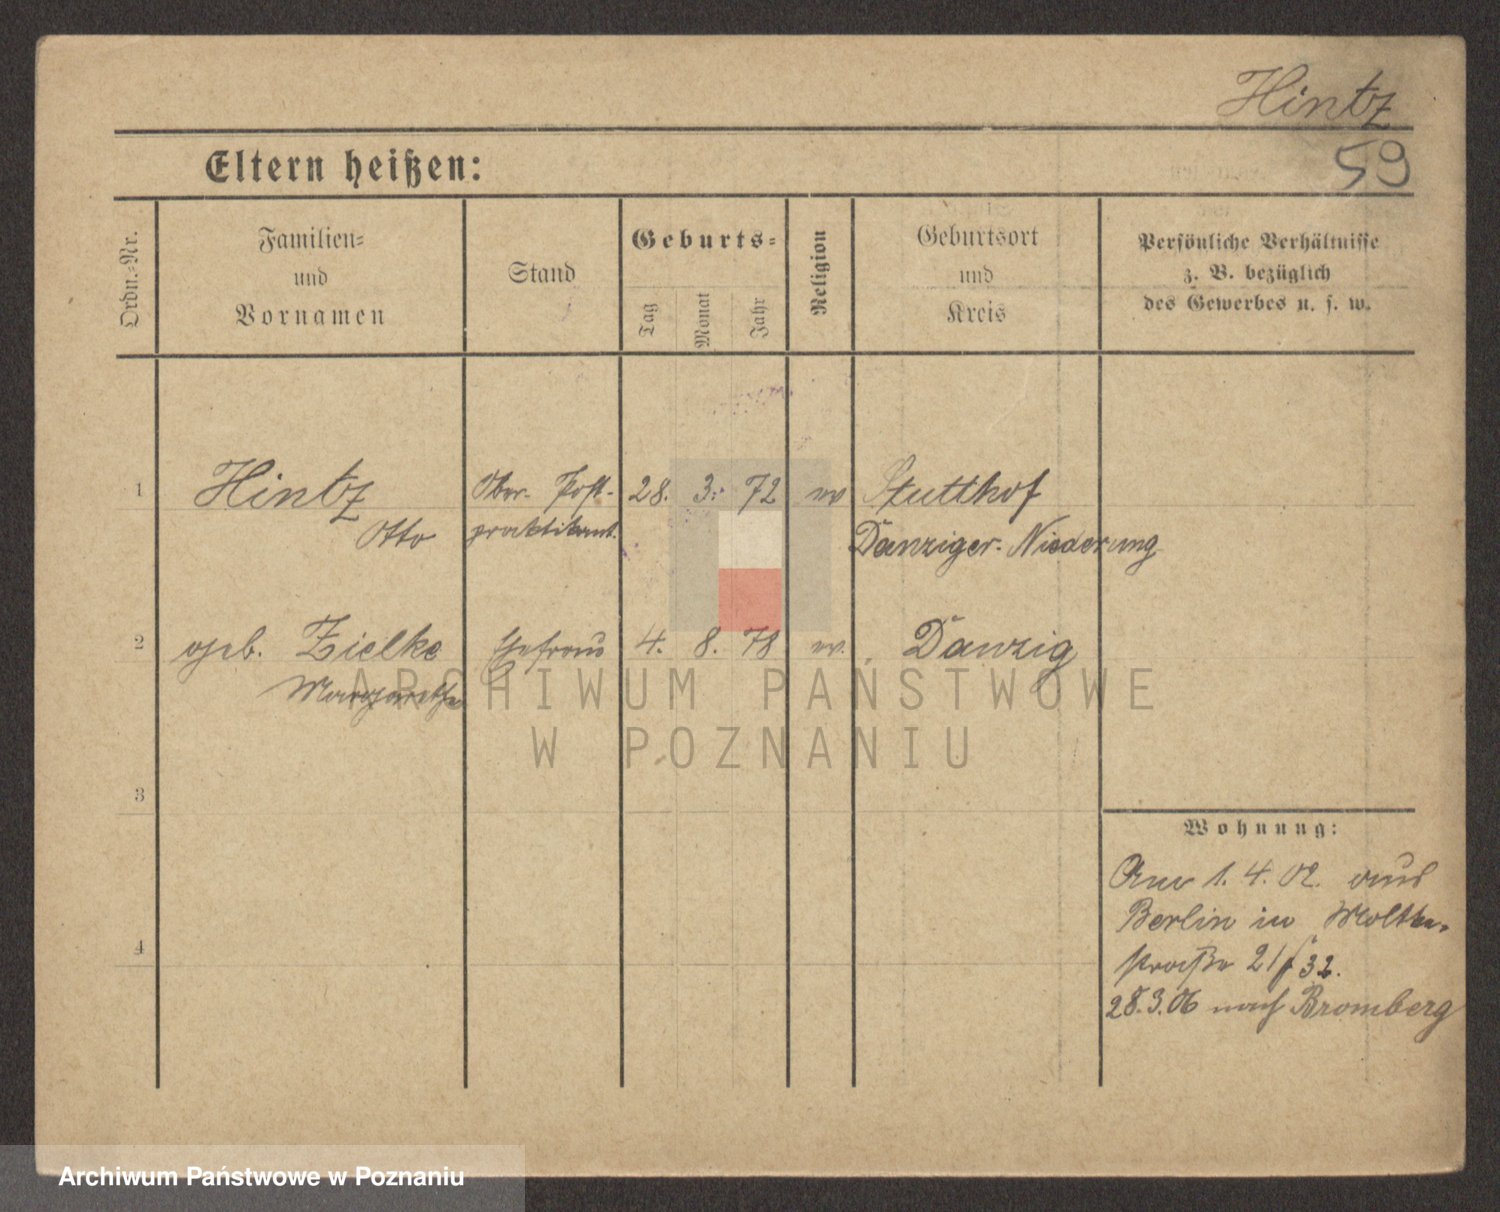 Hintz
59
Eltern heißen:
Ordn.-Nr.
Familien-
und
Vornamen
Stand
Geburts-
Tag
Monat
Jahr
Religion
Geburtsort
und
Kreis
Persönliche Verhältnisse
z. B. bezüglich
des Gewerbes u. s. w.
1 Hintz Ober-Post- 28. 3. 72 ev Stutthof
Otto praktikant. Danziger-Niederung
2 geb. Zielke Ehefrau 4. 8. 78 ev. Danzig
Margarethe
ARCHIWUM PAŃSTWOWE
W POZNANIU
3
Wohnung:
Am 1. 4. 02. aus
Berlin in Moltke-
straße 21/ 32.
28.3.06 nach Bromberg
4
Archiwum Państwowe w Poznaniu